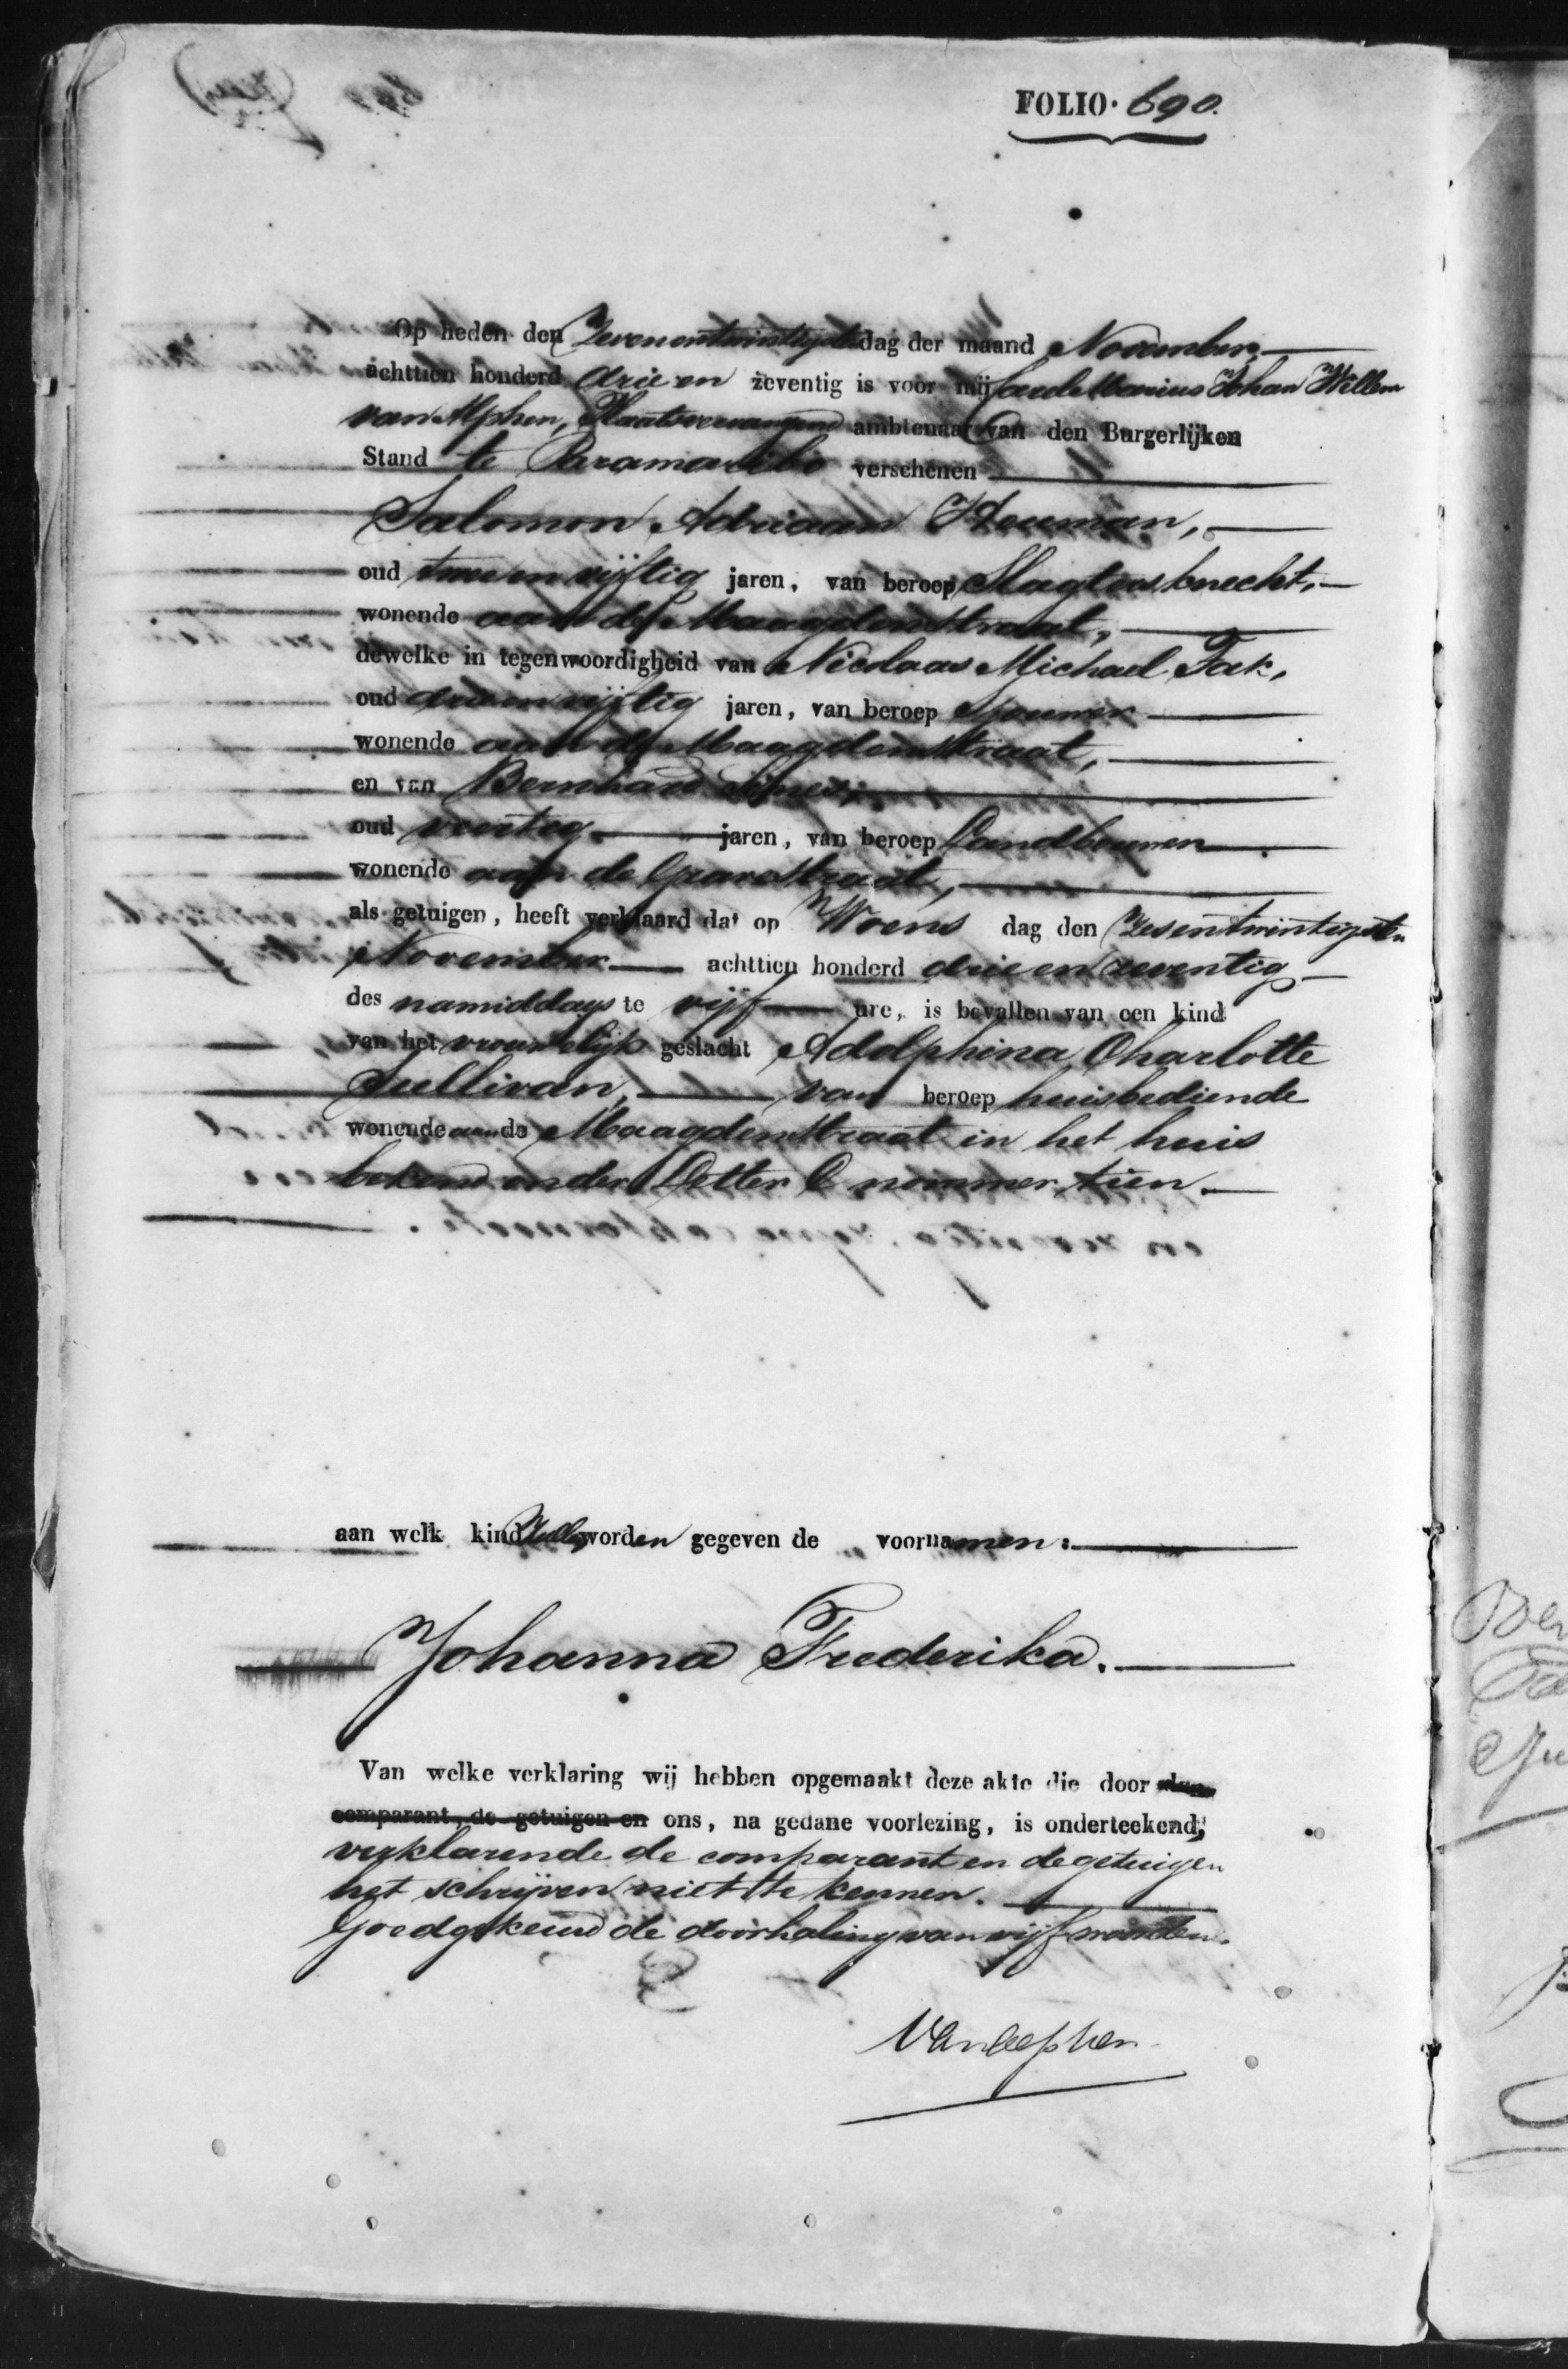 FOLIO. 690.
Op heden den Zevenentwintigsten dag der maand November
achttien honderd drie en zeventig is voor mij Marius Johan Willem
van Alphen, Plaatsvervangend ambtenaar van den Burgerlijken
Stand te Paramaribo verschenen
Salomon Adriaan Heuman,
oud twee en vijftig jaren, van beroep Slagtersknecht,
wonende aan de Maagdenstraat,
dewelke in tegenwoordigheid van Nicolaas Michael Tak,
oud drie en vijftig jaren, van beroep Sjouwer
wonende aan de Maagdenstraat,
en van Bernhard
oud veertig jaren, van beroep Landbouwer
wonende aan de Gravestraat,
als getuigen, heeft verklaard dat op Woens dag den Zesentwintigsten
November achttien honderd drie en zeventig
des namiddags te vijf ure, is bevallen van een kind
van het vrouwelijk geslacht Adolphina Charlotte
Sullivan, van beroep huisbediende
wonende aan de Maagdenstraat in het huis
bekend onder Letter C nommer tien.
aan welk kind Zullen worden gegeven de voornamen:
Johanna Frederika.
Van welke verklaring wij hebben opgemaakt deze akte die door den
comparant, de getuigen en ons, na gedane voorlezing, is onderteekend,
verklarende de comparant en de getuigen
het schrijven niet te kennen.
Goedgekeurd de doorhaling van vijf woorden.
VanAlphen